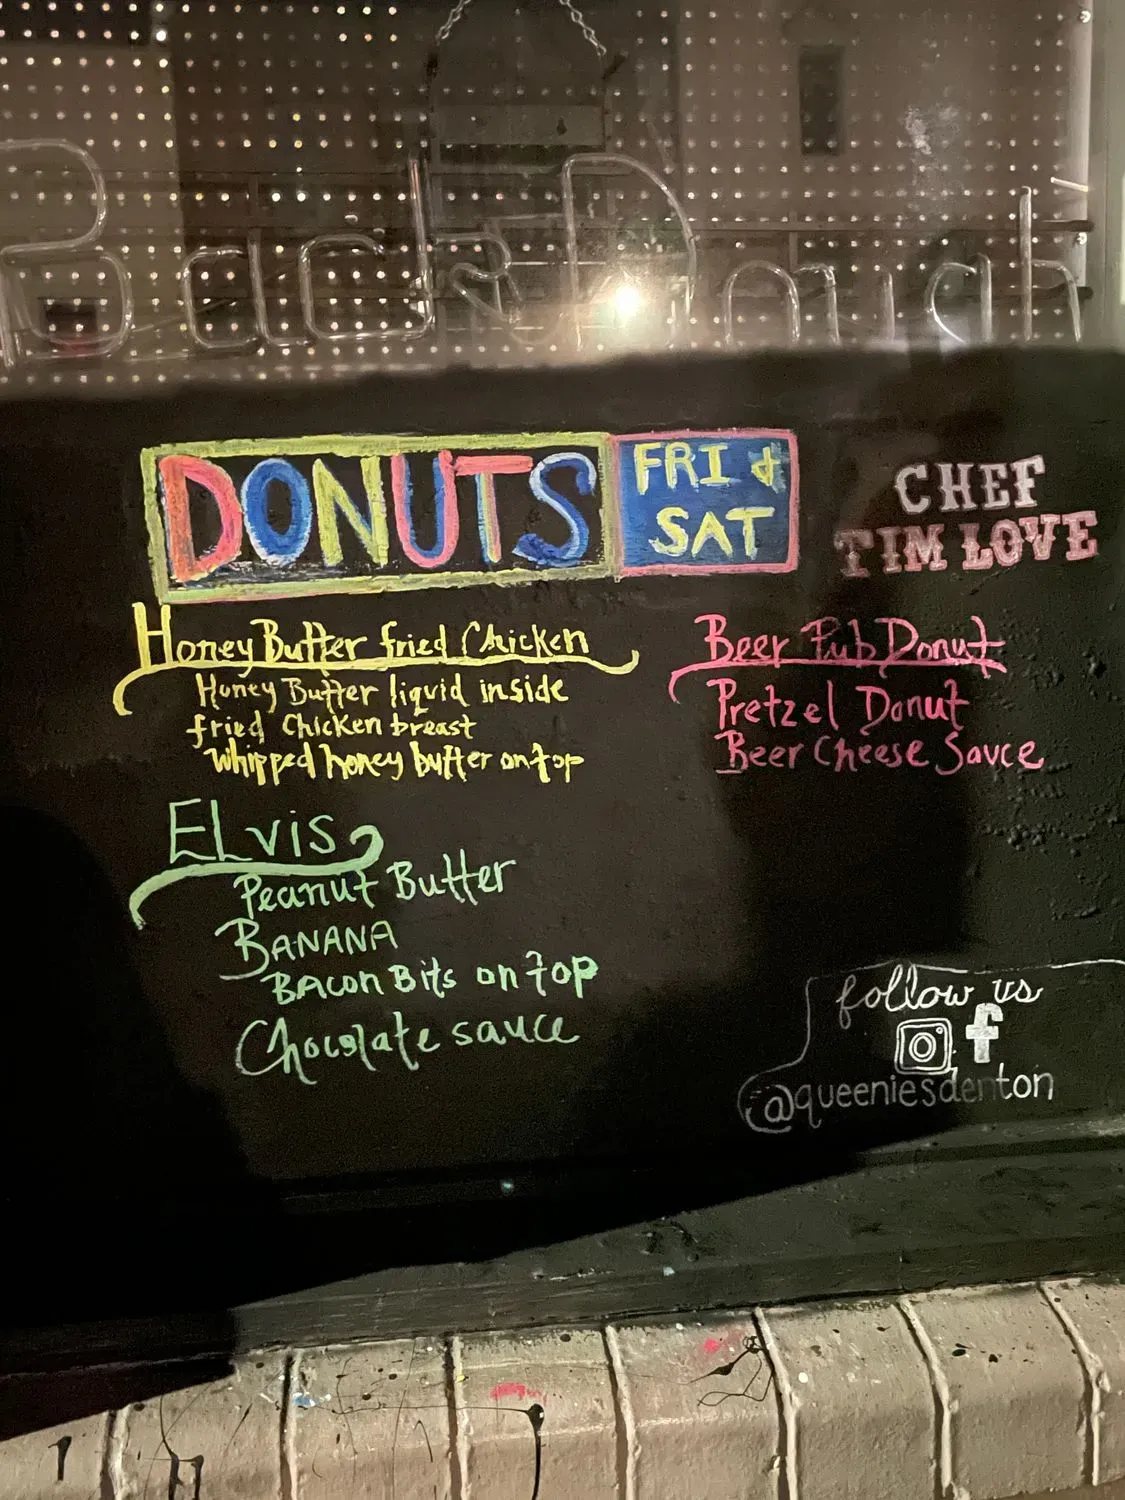 DONUTS
FRI &
SAT
CHEF
TIM LOVE
Honey Butter fried Chicken
Honey Butter liquid inside
fried Chicken breast
whipped honey butter on top
ELvis
Peanut Butter
BANANA
BACON Bits on top
Chocolate sauce
Beer Pub Donut
Pretzel Donut
Beer Cheese Sauce
follow us
f
@queeniesdenton